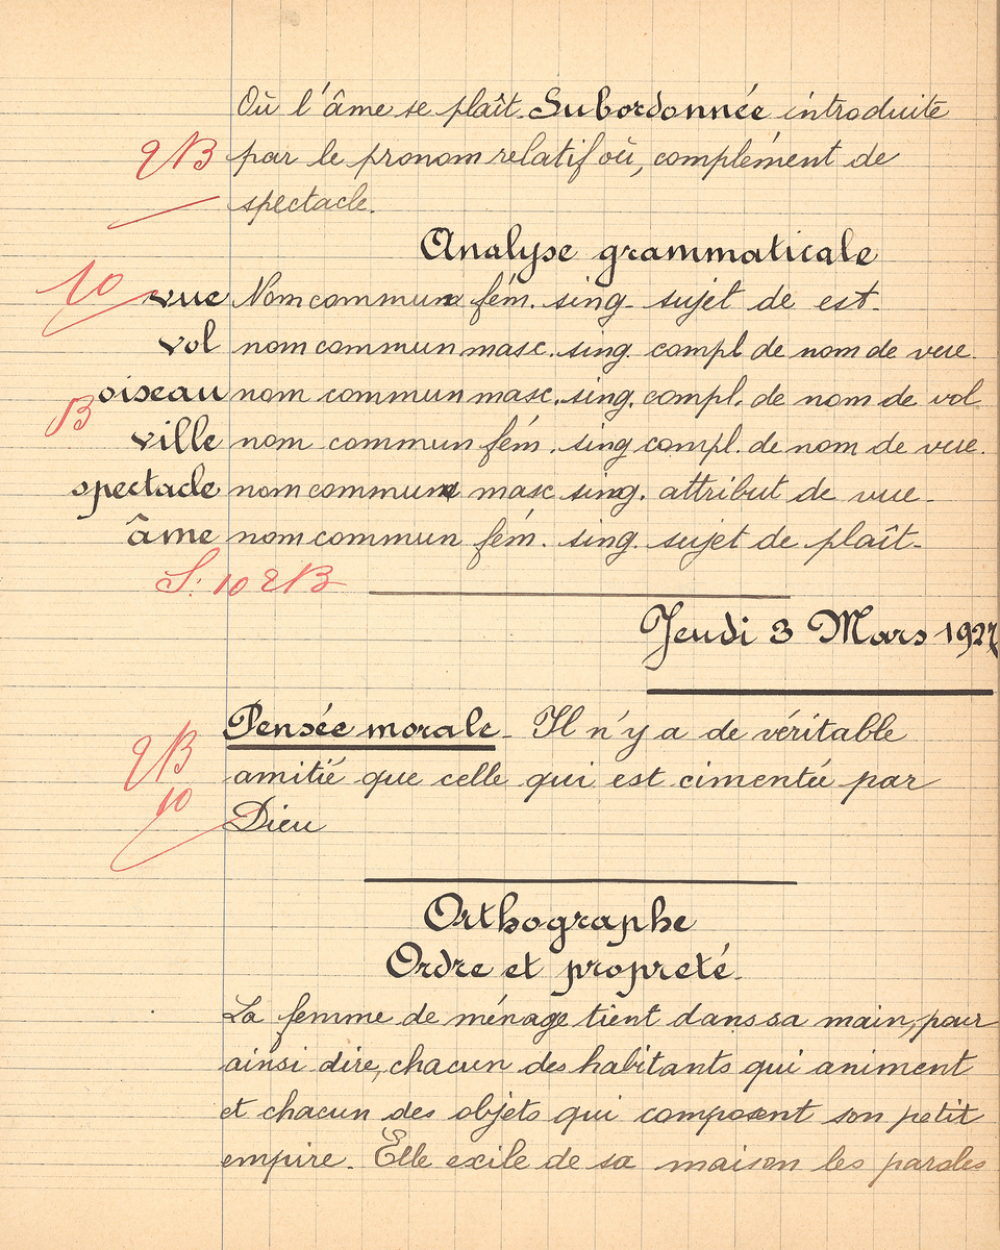 Où l'âme se plaît. Subordonnée introduite
TB par le pronom relatif où, complément de
spectacle.
Analyse grammaticale
10
vue Nom commun fém. sing. sujet de est.
vol nom commun masc. sing. compl de nom de vue.
oiseau nom commun masc. sing. compl. de nom de vol
B
ville nom commun fém. sing compl. de nom de vue.
spectacle nom commun masc sing. attribut de vue.
âme nom commun fém. sing. sujet de plaît.
S: 10 TB
Jeudi 3 Mars 1927
Pensée morale. Il n'y a de véritable
TB
amitié que celle qui est cimentée par
10
Dieu
Orthographe
Ordre et propreté.
La femme de ménage tient dans sa main, pour
ainsi dire, chacun des habitants qui animent
et chacun des objets qui composent son petit
empire. Elle exile de sa maison les paroles